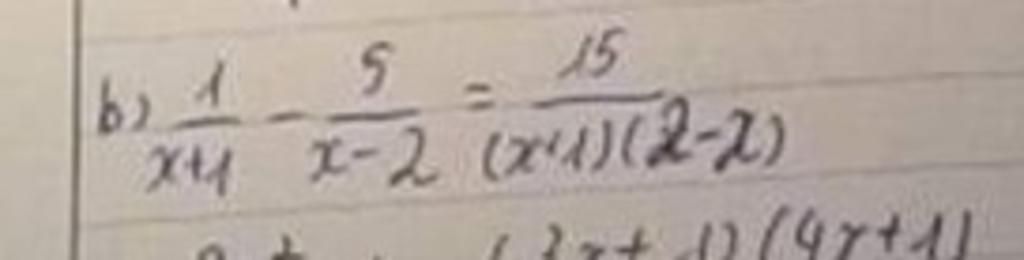 b) \frac{1}{x+1} - \frac{5}{x-2} = \frac{15}{(x+1)(2-x)}
(4x+1)